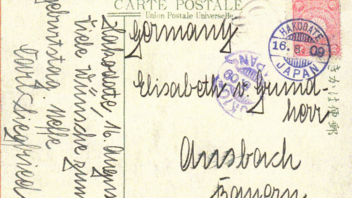 CARTE POSTALE
Union Postale Universelle
Germany
Elisabeth v. Grund-
herr
Ansbach
Bayern
HAKODATE
16. 8. 09
JAPAN
きかは便郵
Hakodate, 16. August
Viele Wünsche zum
Geburtstag. Hoffe
Karl Siegfried